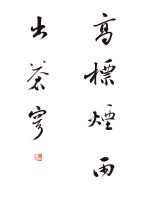 高標煙雨
出蒼穹